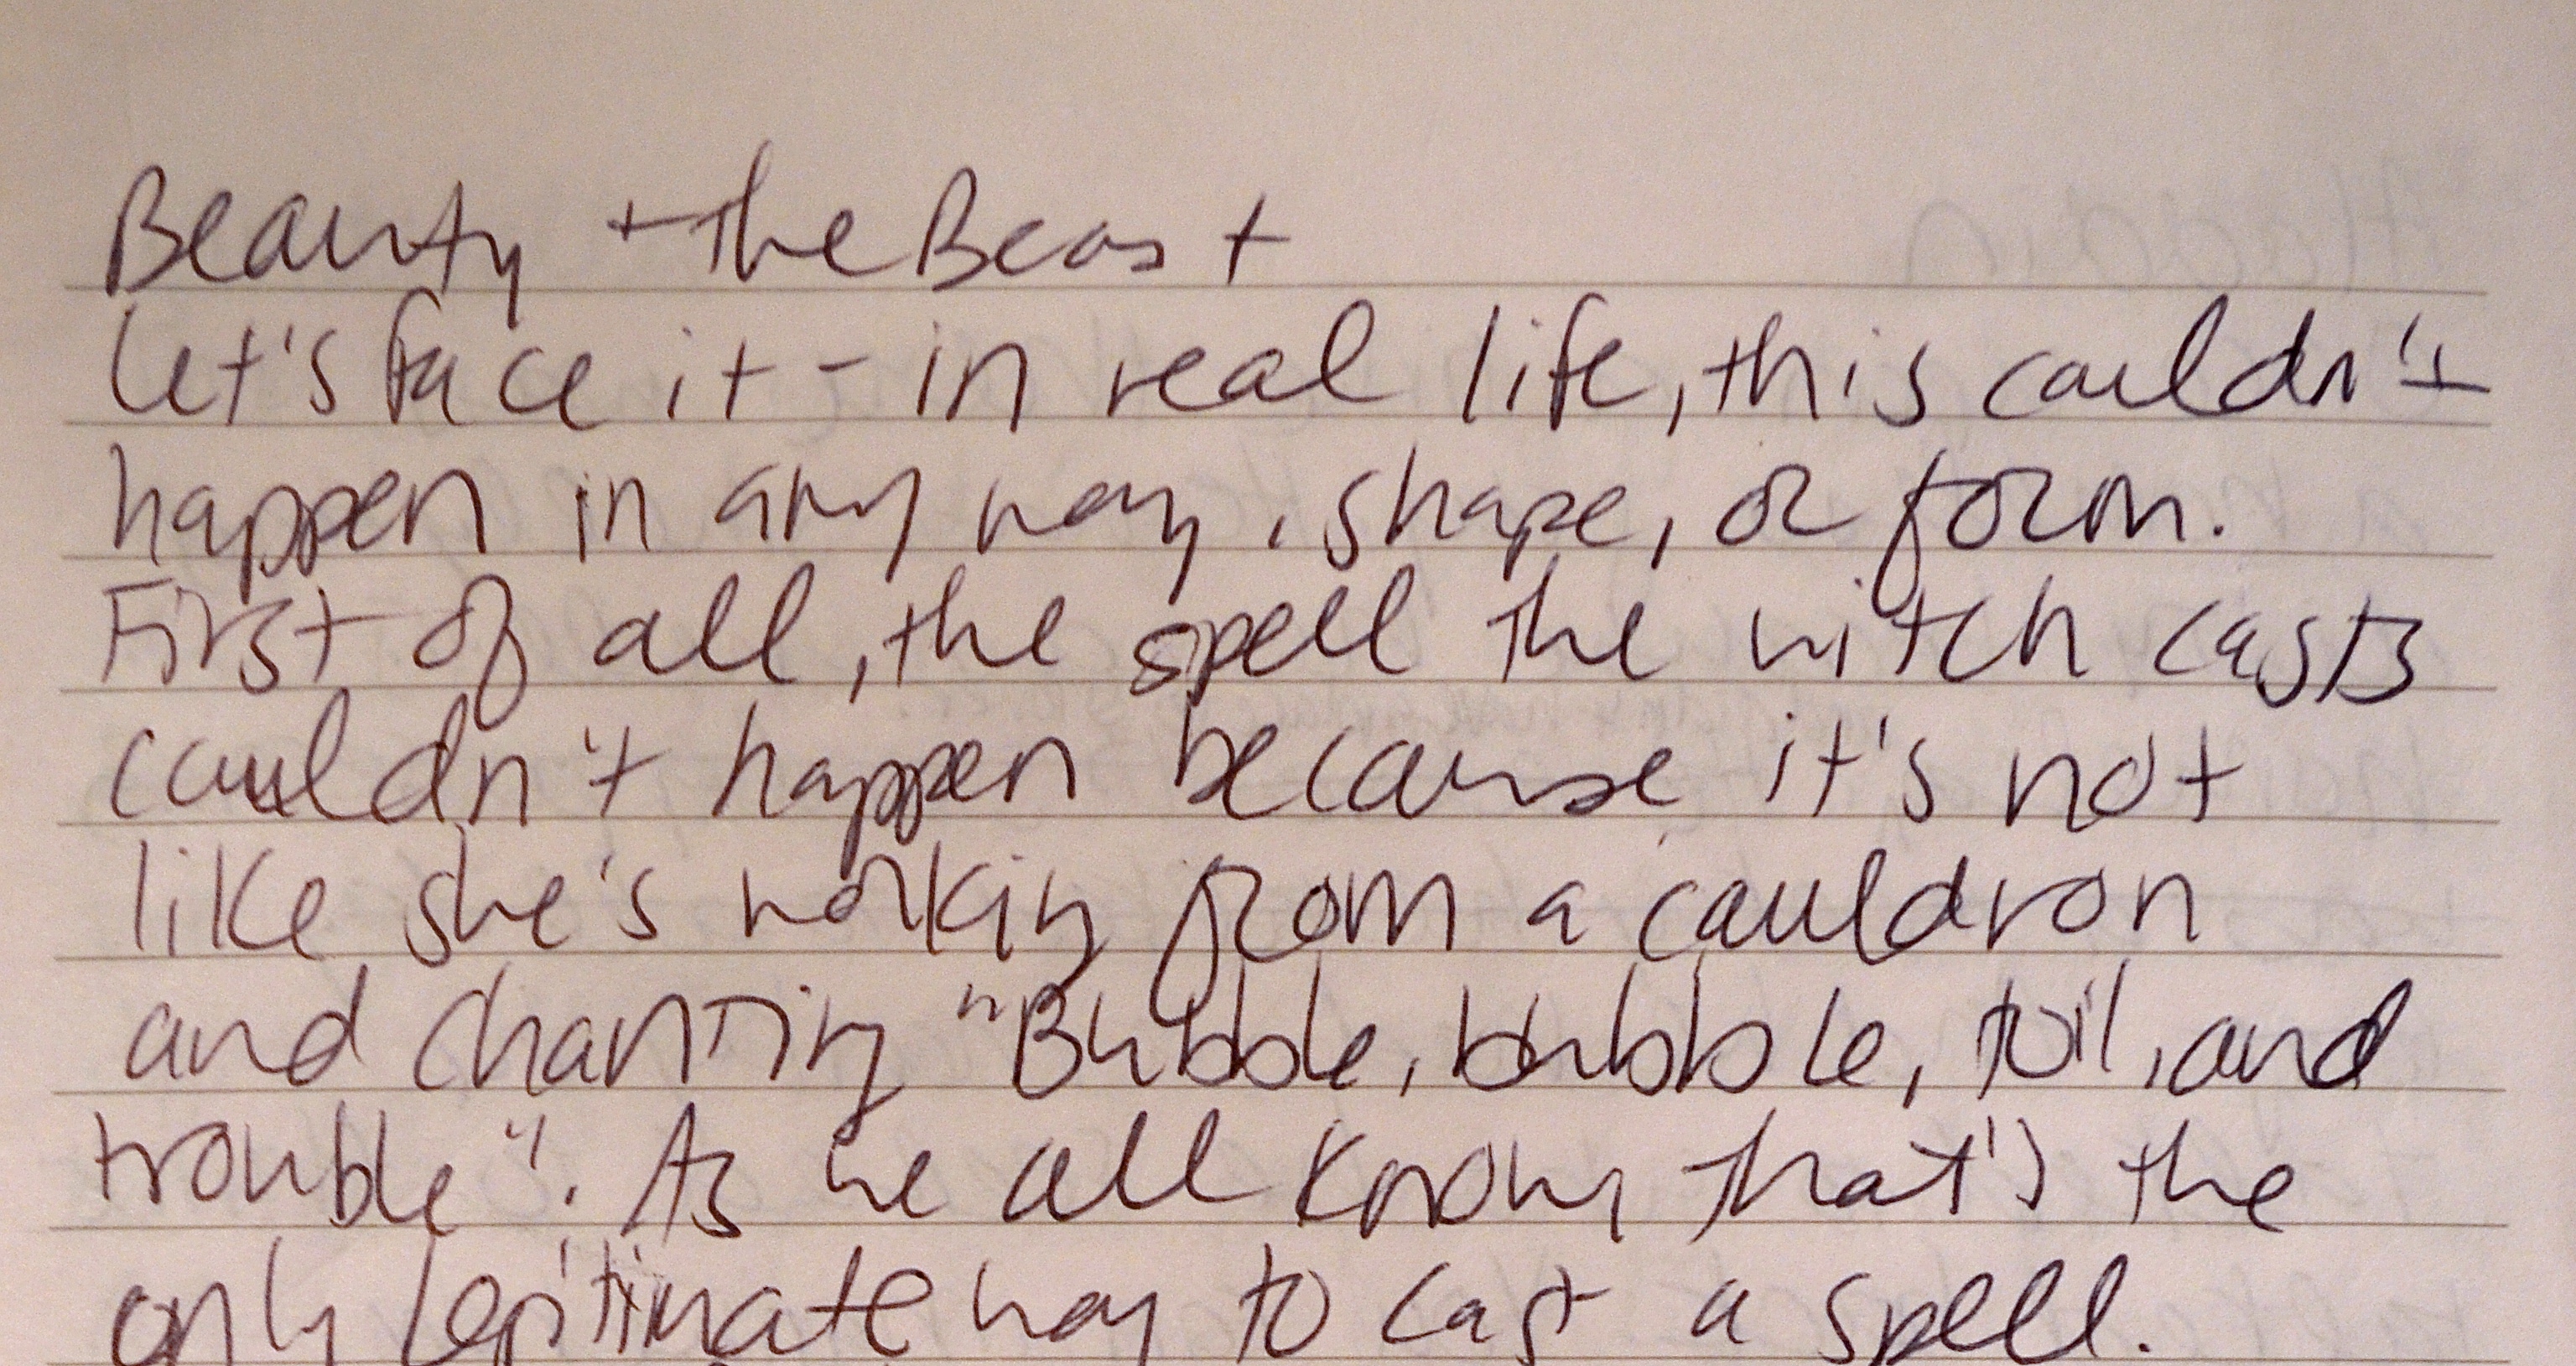 Beauty + the Beast
Let's face it - in real life, this couldn't
happen in any way, shape, or form.
First of all, the spell the witch casts
couldn't happen because it's not
like she's working from a cauldron
and chanting "Bubble, bubble, toil, and
trouble". As we all know, that's the
only legitimate way to cast a spell.